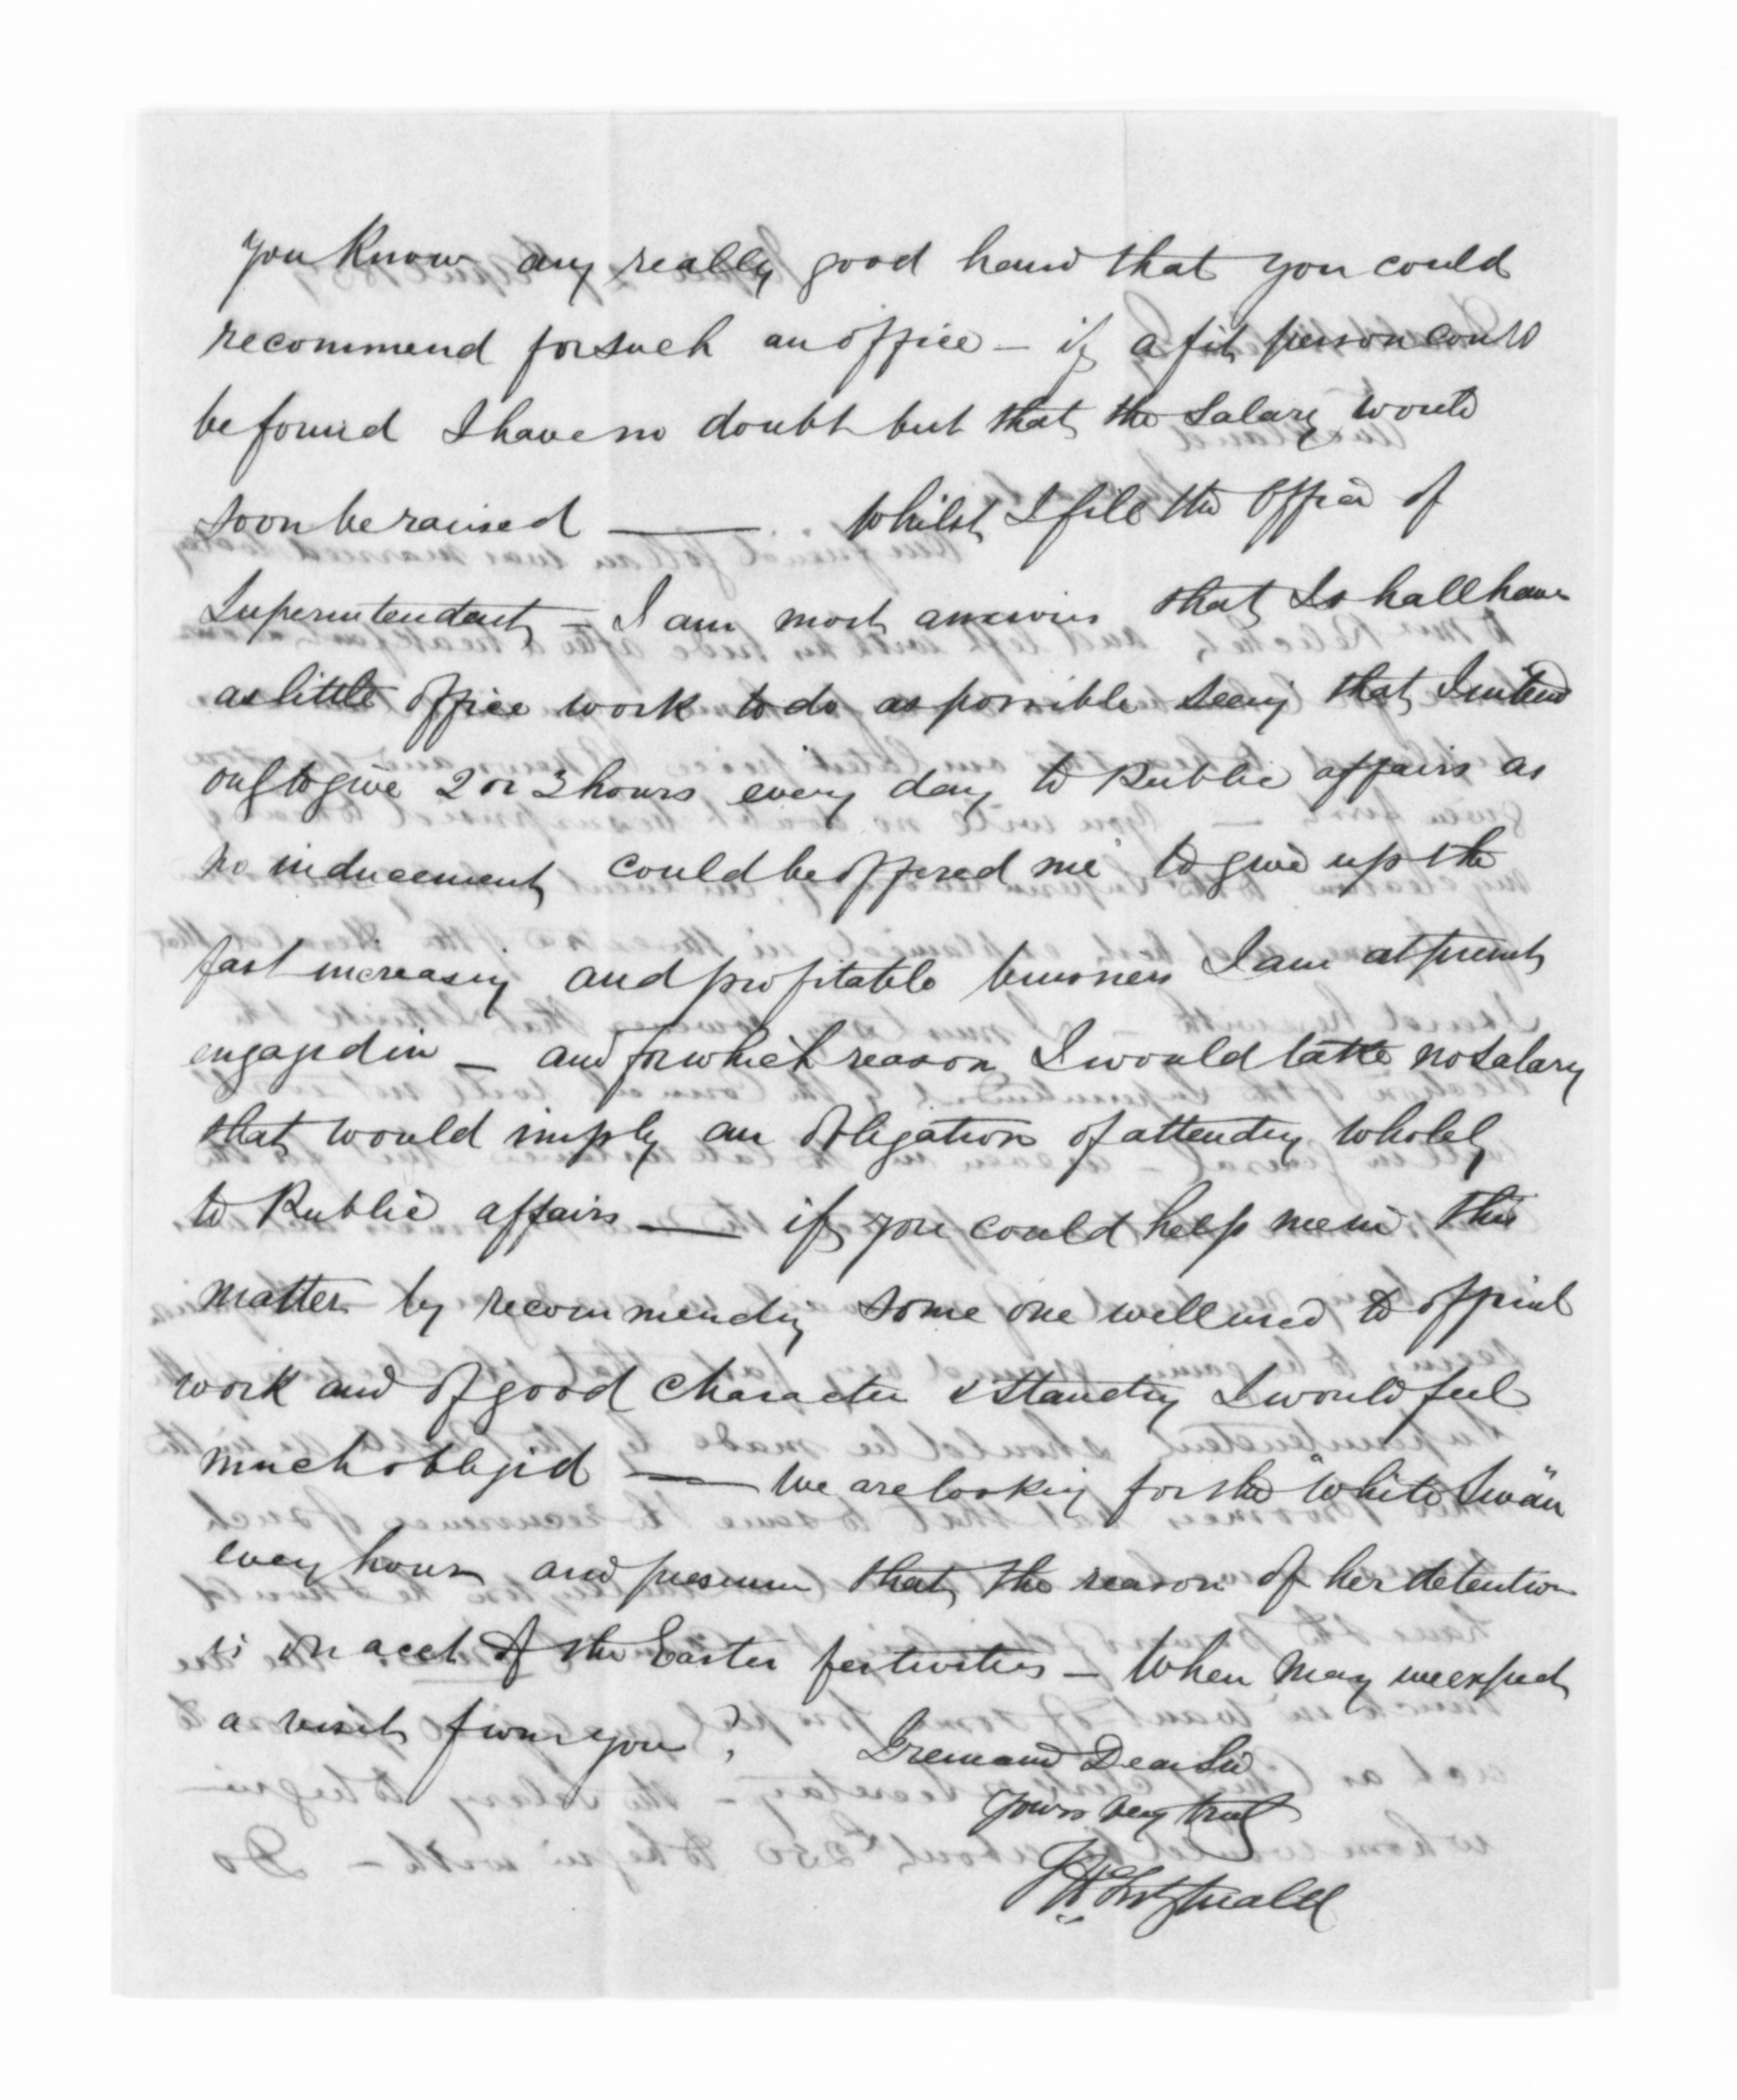 you know any really good hand that you could
recommend for such an office – if a fit person could
be found I have no doubt but that the Salary would
soon be raised —— Whilst I fill the Office of
Superintendent – I am most anxious that I shall have
as little office work to do as possible seeing that I intend
only to give 2 or 3 hours every day to Public affairs as
no inducement could be offered me to give up the
fast increasing and profitable business I am at present
engaged in – and for which reason I would take no Salary
that would imply an obligation of attending wholely
to Public affairs —— if you could help me in this
matter by recommending some one well used to official
work and of good character & standing I would feel
much obliged —— We are looking for the "White Swan"
every hour and presume that the reason of her detention
is on acct of the Easter festivities – When may we expect
a visit from you ? I remain Dear Sir
Yours very truly
J H Fitzgerald